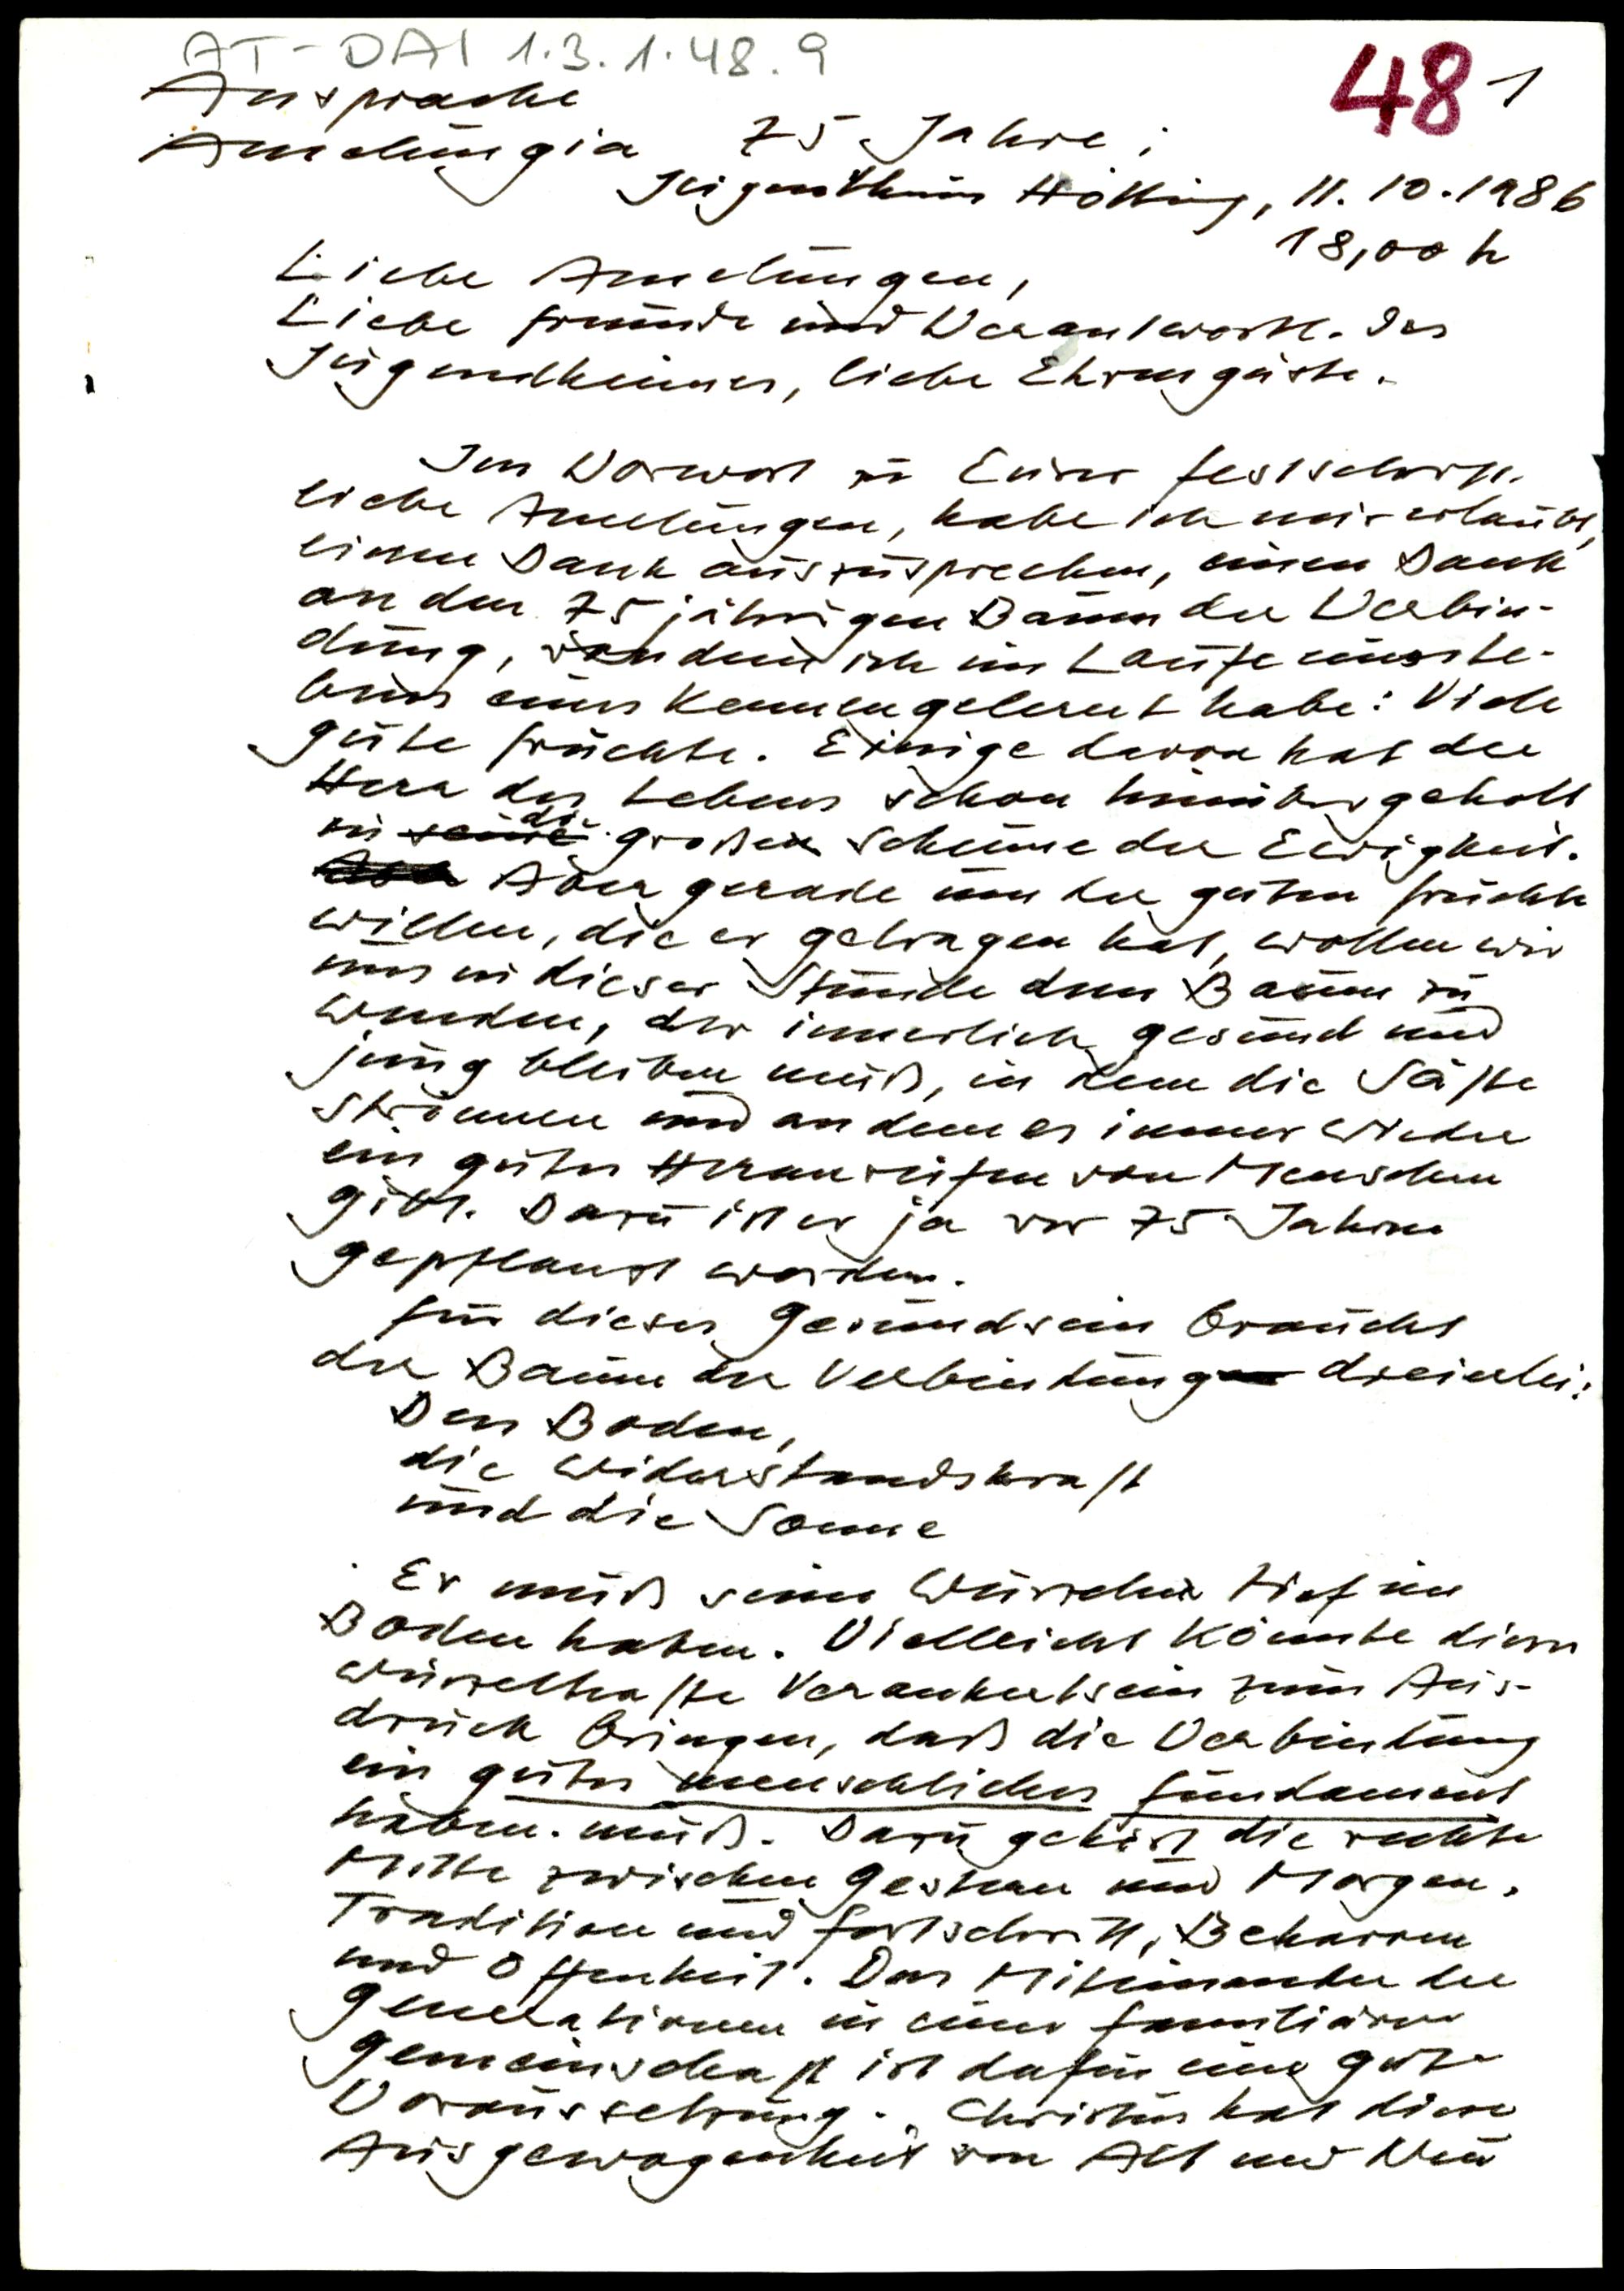 AT-DAI 1.3.1.48.9
48 1
Ansprache
Amelungia 75 Jahre;
Jugendheim Hötting, 11.10.1986
18,00 h
Liebe Amelungen,
Liebe Freunde und Verantwortl. des
Jugendheimes, liebe Ehrengäste.
Im Vorwort zu Eurer Festschrift,
liebe Amelungen, habe ich mir erlaubt,
einen Dank auszusprechen, einen Dank
an den 75 jährigen Baum der Verbin-
dung, von dem ich im Laufe
kennengelernt habe: Viele
gute Früchte. Einige davon hat der
Herr des Lebens schon hinübergeholt
in seine die große Scheune der Ewigkeit.
Aber Aber gerade um der guten Früchte
willen, die er getragen hat, wollen wir
uns in dieser Stunde dem Baum zu
wenden, der innerlich gesund und
jung bleiben muß, in dem die Säfte
strömen und an dem es immer wieder
ein gutes Heranreifen von Menschen
gibt. Dazu ist er ja vor 75 Jahren
gepflanzt worden.
Für dieses Gesundsein braucht
der Baum der Verbindung dreierlei:
Den Boden,
die Widerstandskraft
und die Sonne
Er muß seine Wurzeln tief im
Boden haben. Vielleicht könnte dieses
wurzelhafte Verankertsein zum Aus-
druck bringen, daß die Verbindung
ein gutes menschliches Fundament
haben muß. Dazu gehört die rechte
Mitte zwischen Gestern und Morgen,
Tradition und Fortschritt, Beharren
und Offenheit. Das Miteinander der
Generationen in einer familiären
Gemeinschaft ist dafür eine gute
Voraussetzung. Christus hat diese
Ausgewogenheit von Alt und Neu